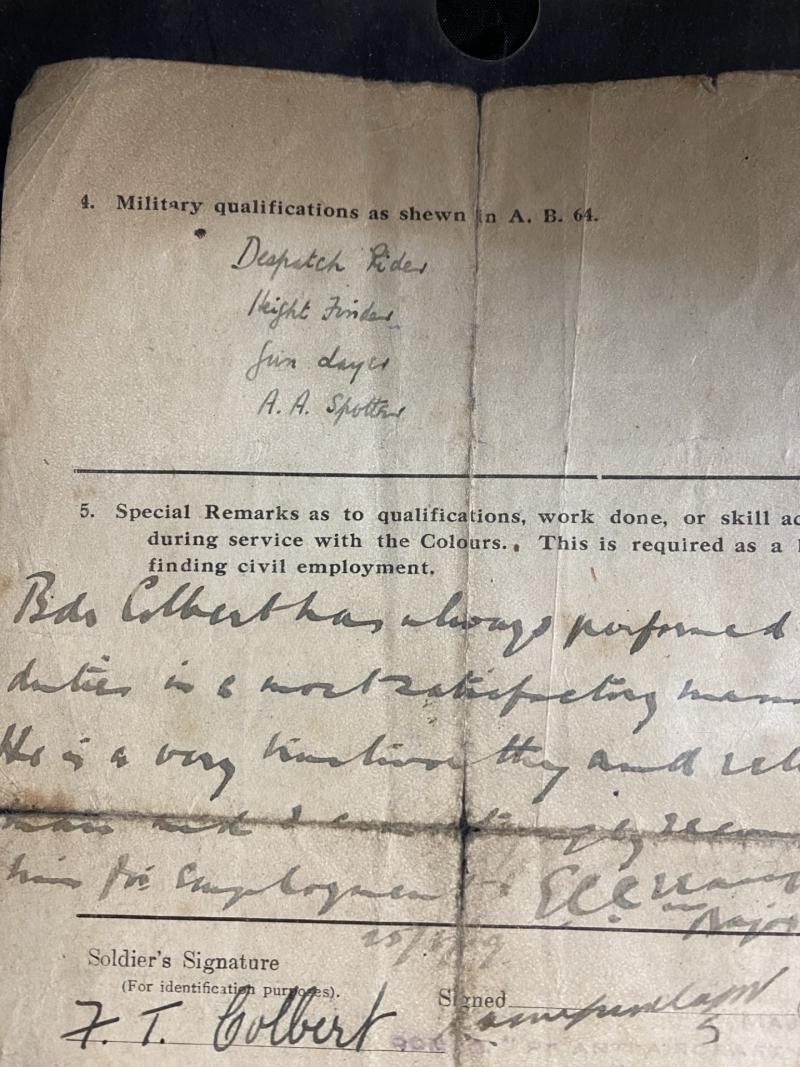 4. Military qualifications as shewn in A. B. 64.
Despatch Rider
Height Finder
Gun Layer
A. A. Spotter
5. Special Remarks as to qualifications, work done, or skill ac
during service with the Colours. This is required as a
finding civil employment.
Bdr Colbert has always performed
duties in a most satisfactory mann
He is a very trustworthy and reli
man and I can strongly recom
him for employment
Major
Soldier's Signature
(For identification purposes).
Signed
F. T. Colbert